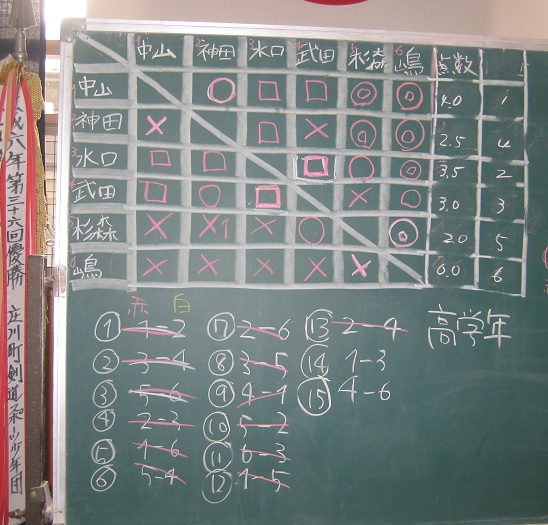 平成六年第三十六回優勝 庄川町剣道スポーツ少年団
1中山 2神田 3水口 4武田 5杉森 6嶋 点数
1中山 ○ □ □ ◎ ◎ 4.0 1
2神田 × □ × ◎ ◎ 2.5 4
3水口 □ □ □ ○ ○ 3.5 2
4武田 □ ○ □ × ○ 3.0 3
5杉森 × × × ○ ◎ 2.0 5
6嶋 × × × × × 0.0 6
赤 白
① 1-2 ⑦ 2-6 ⑬ 2-4 高学年
② 3-4 ⑧ 3-5 ⑭ 1-3
③ 5-6 ⑨ 4-1 ⑮ 4-6
④ 2-3 ⑩ 5-2
⑤ 1-6 ⑪ 6-3
⑥ 5-4 ⑫ 1-5